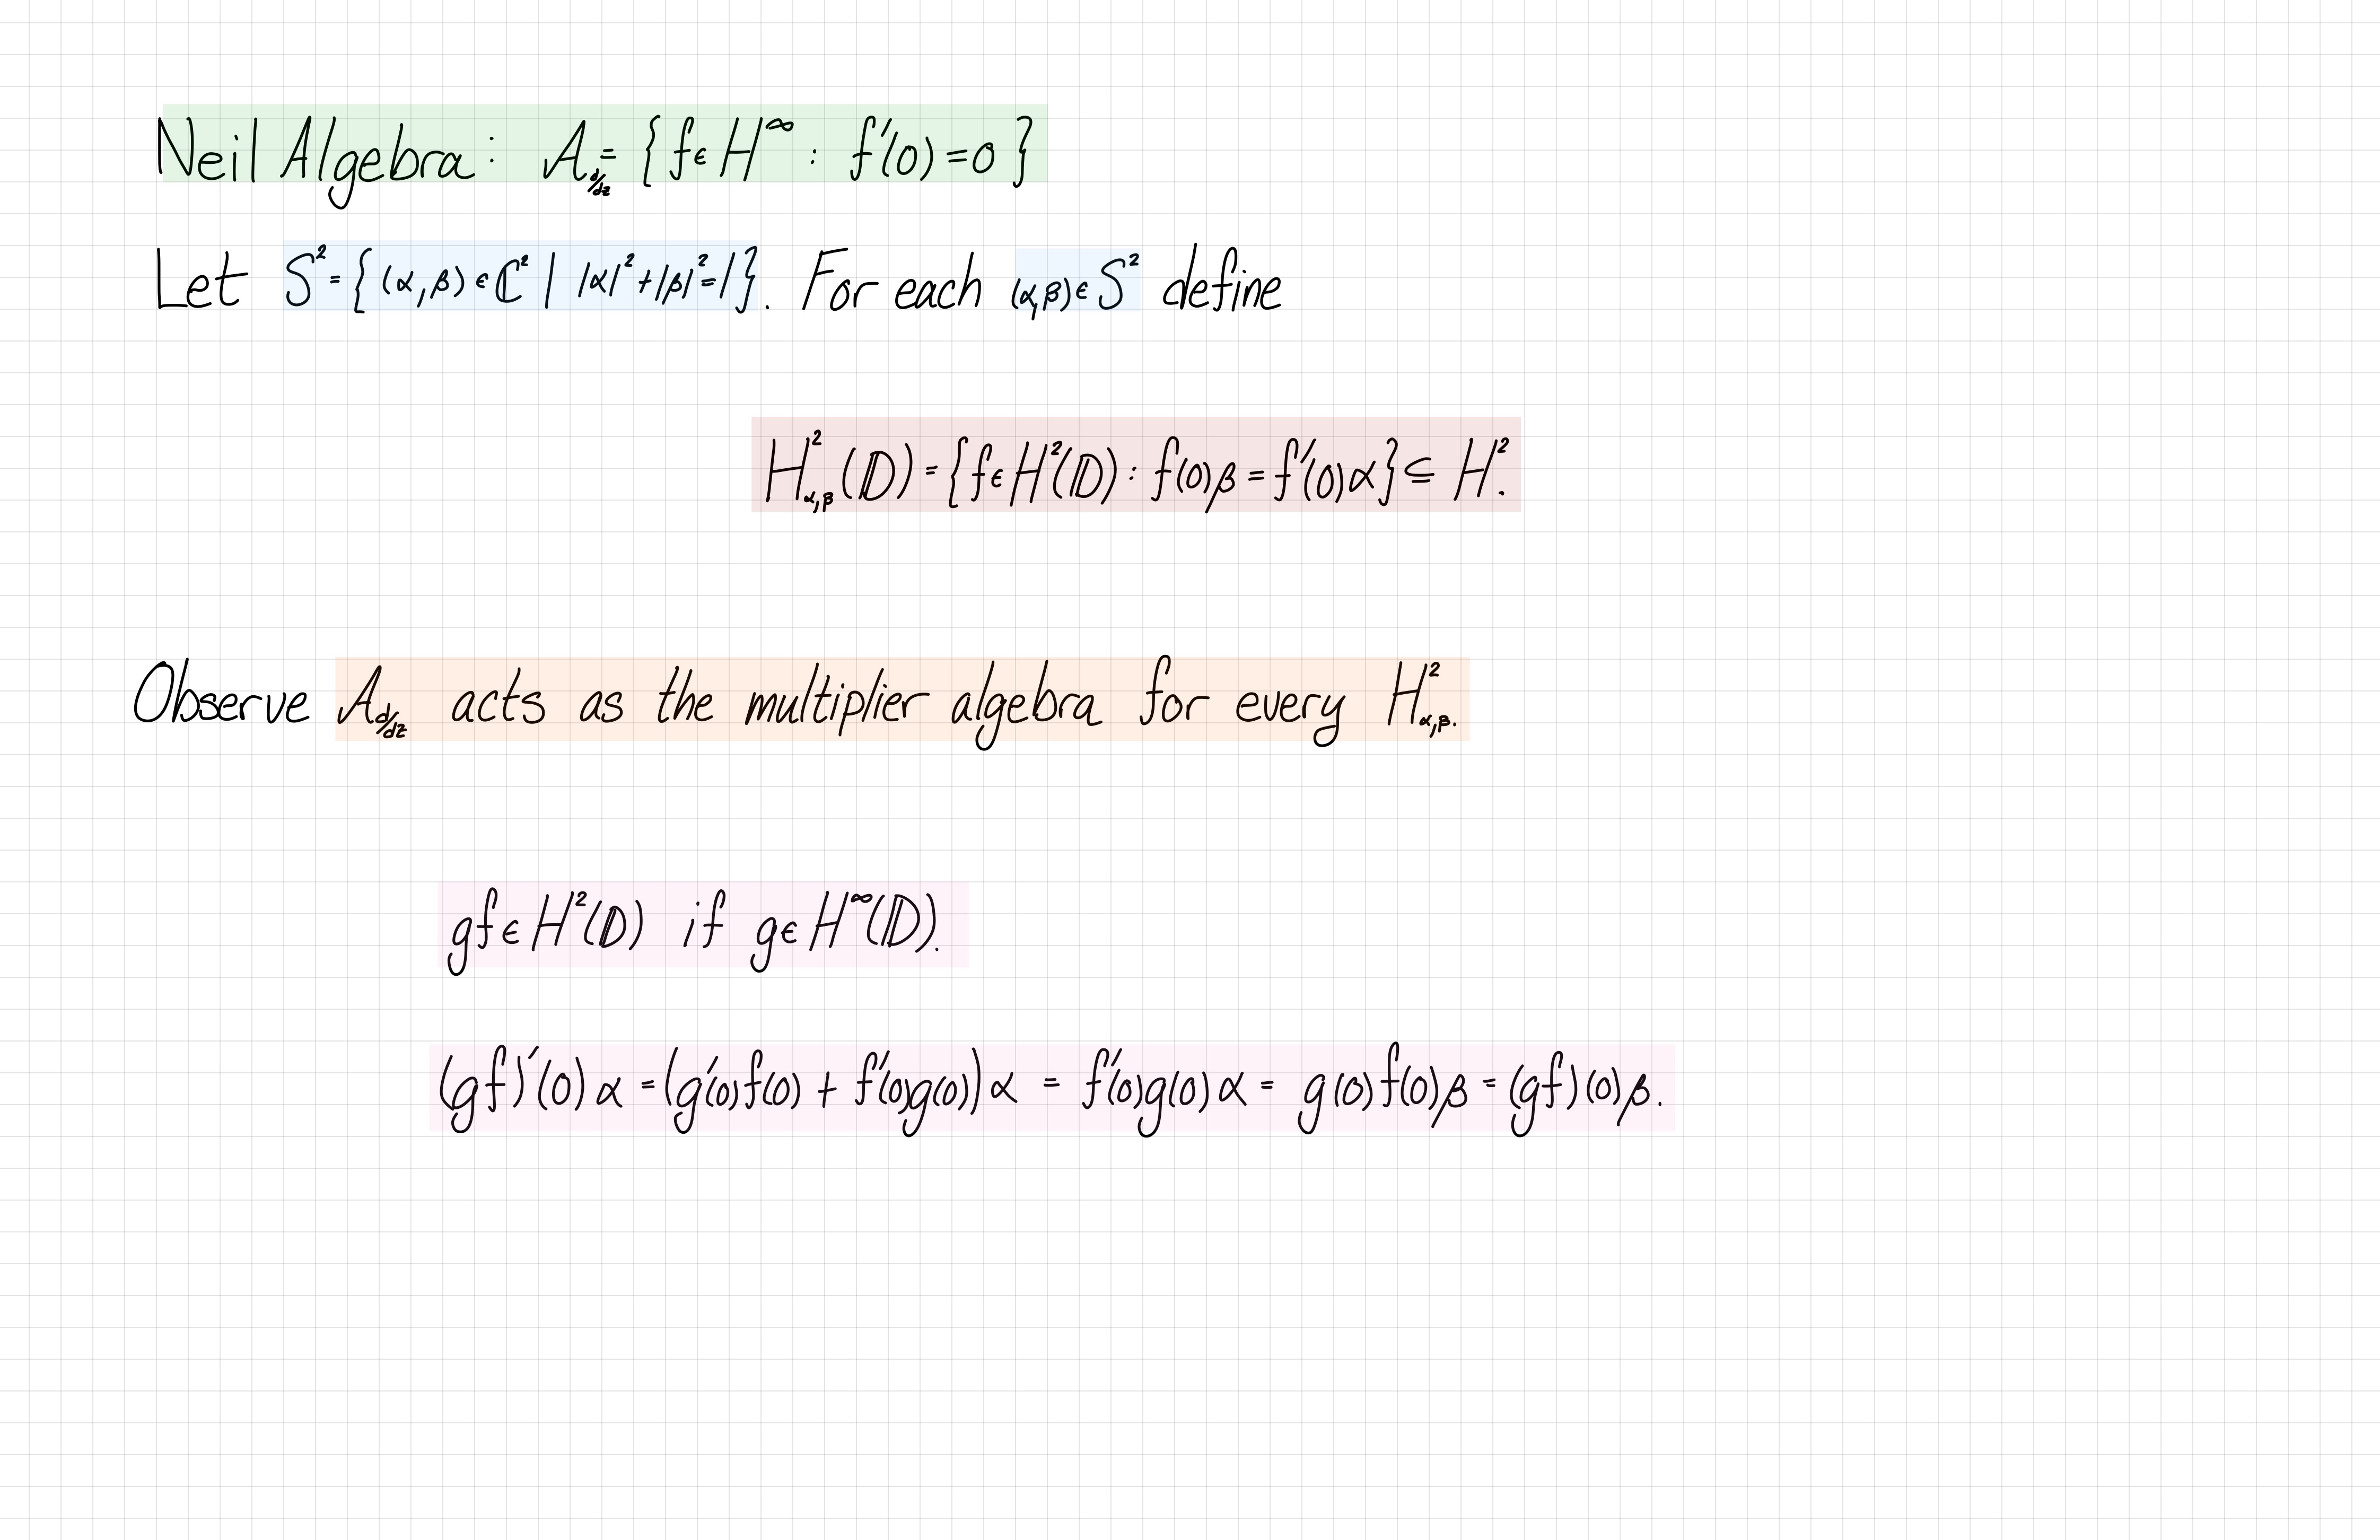 Neil Algebra: A_{d/dz} = {f ∈ H^∞ : f'(0) = 0}
Let S² = {(α, β) ∈ ℂ² | |α|² + |β|² = 1}. For each (α, β) ∈ S² define
H²_{α,β}(𝔻) = {f ∈ H²(𝔻) : f(0)β = f'(0)α} ⊆ H².
Observe A_{d/dz} acts as the multiplier algebra for every H²_{α,β}.
gf ∈ H²(𝔻) if g ∈ H^∞(𝔻).
(gf)'(0)α = (g'(0)f(0) + f'(0)g(0))α = f'(0)g(0)α = g(0)f(0)β = (gf)(0)β.